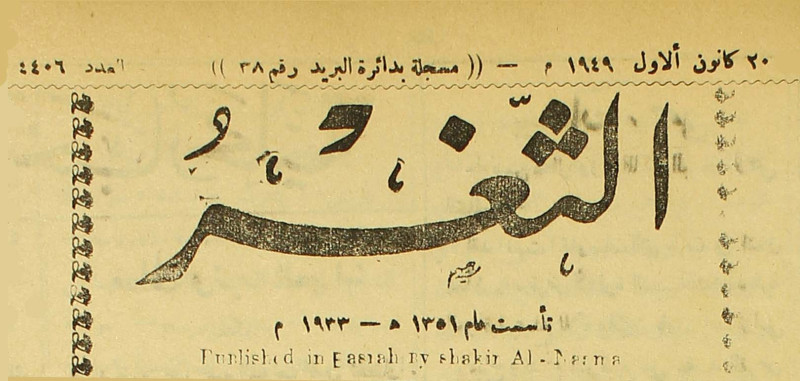 ٢٠ كانون الاول ١٩٤٩ م — (( مسجلة بدائرة البريد رقم ٣٨ )) العدد ٤٤٠٦
الثَّغْرُ
تأسست عام ١٣٥١ ه — ١٩٣٣ م
Published in Basrah by shakir Al-Nasma